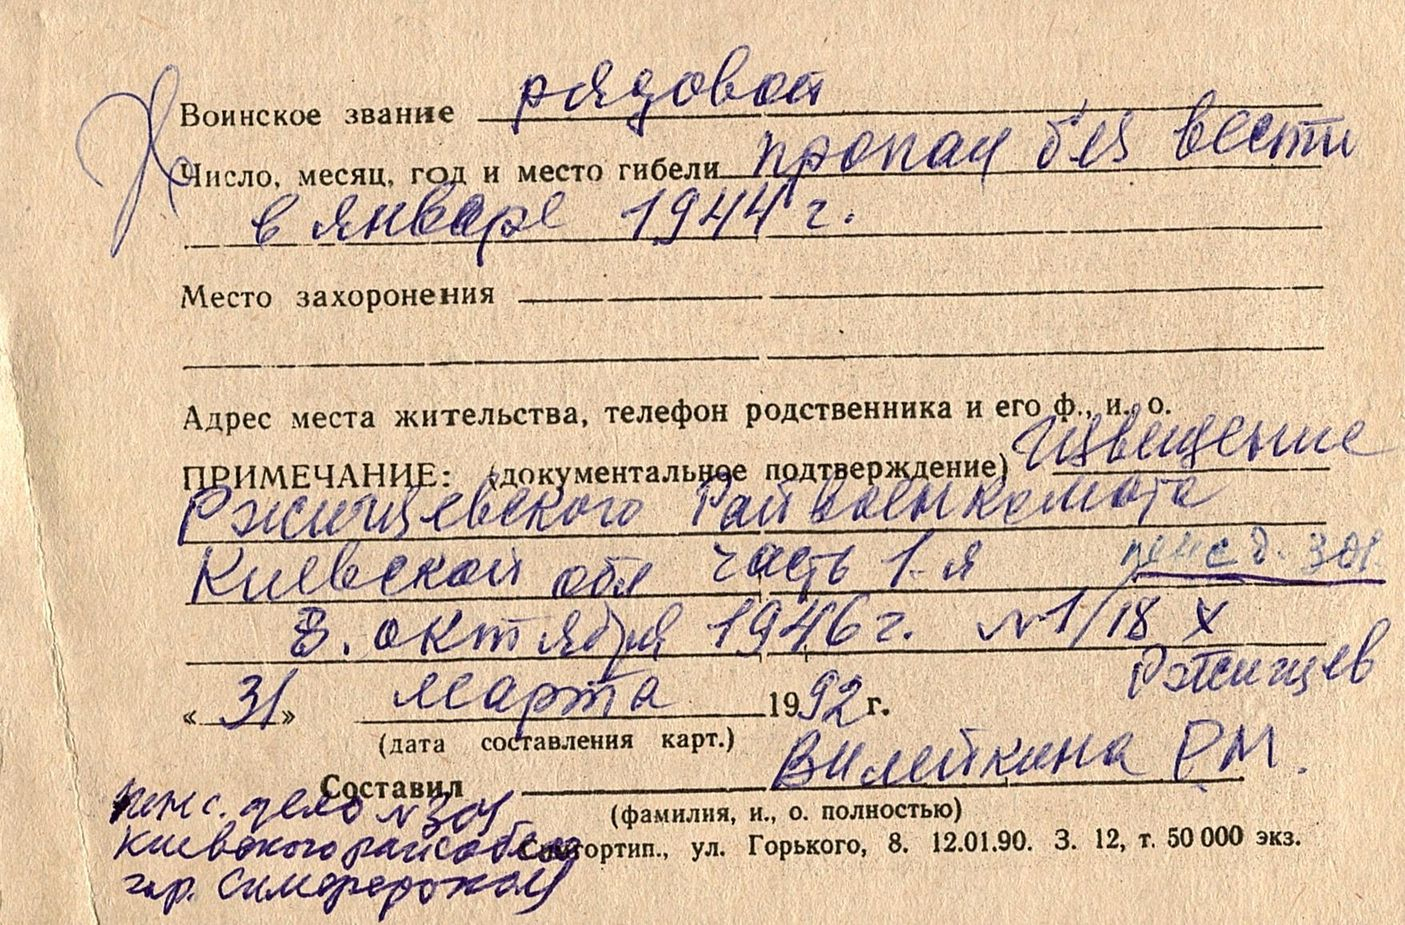 Воинское звание рядовой
Число, месяц, год и место гибели пропал без вести
в январе 1944 г.
Место захоронения
Адрес места жительства, телефон родственника и его ф., и., о.
ПРИМЕЧАНИЕ: (документальное подтверждение) Извещение
Ржищевского Райвоенкомата
Киевской обл часть 1-я пенс д. 301
8. октября 1946 г. №1/18 х
Ржищев
«31» марта 1992 г.
(дата составления карт.)
Составил Вилейкина Р М.
(фамилия, и., о. полностью)
пенс. дело №301
Киевского райсобеса
гор. Симферополя
Симфгортип., ул. Горького, 8. 12.01.90. З. 12, т. 50 000 экз.